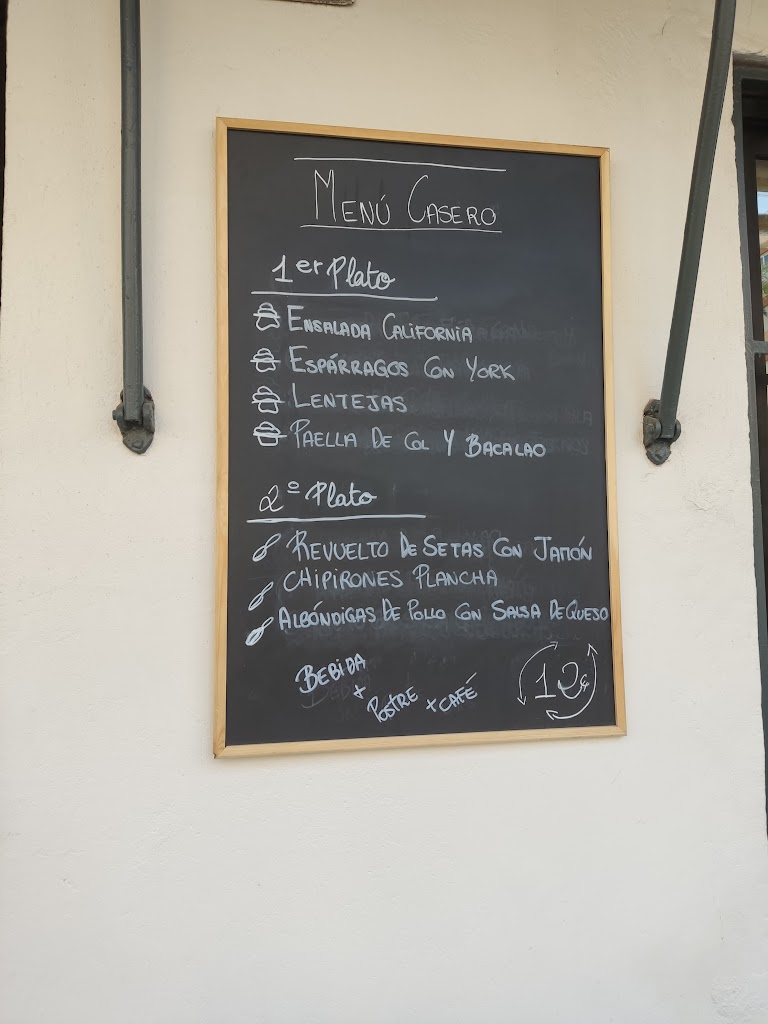 MENÚ CASERO
1er Plato
ENSALADA CALIFORNIA
ESPÁRRAGOS CON YORK
LENTEJAS
PAELLA DE COL Y BACALAO
2º Plato
REVUELTO DE SETAS CON JAMÓN
CHIPIRONES PLANCHA
ALBÓNDIGAS DE POLLO CON SALSA DE QUESO
BEBIDA + POSTRE + CAFÉ
12€